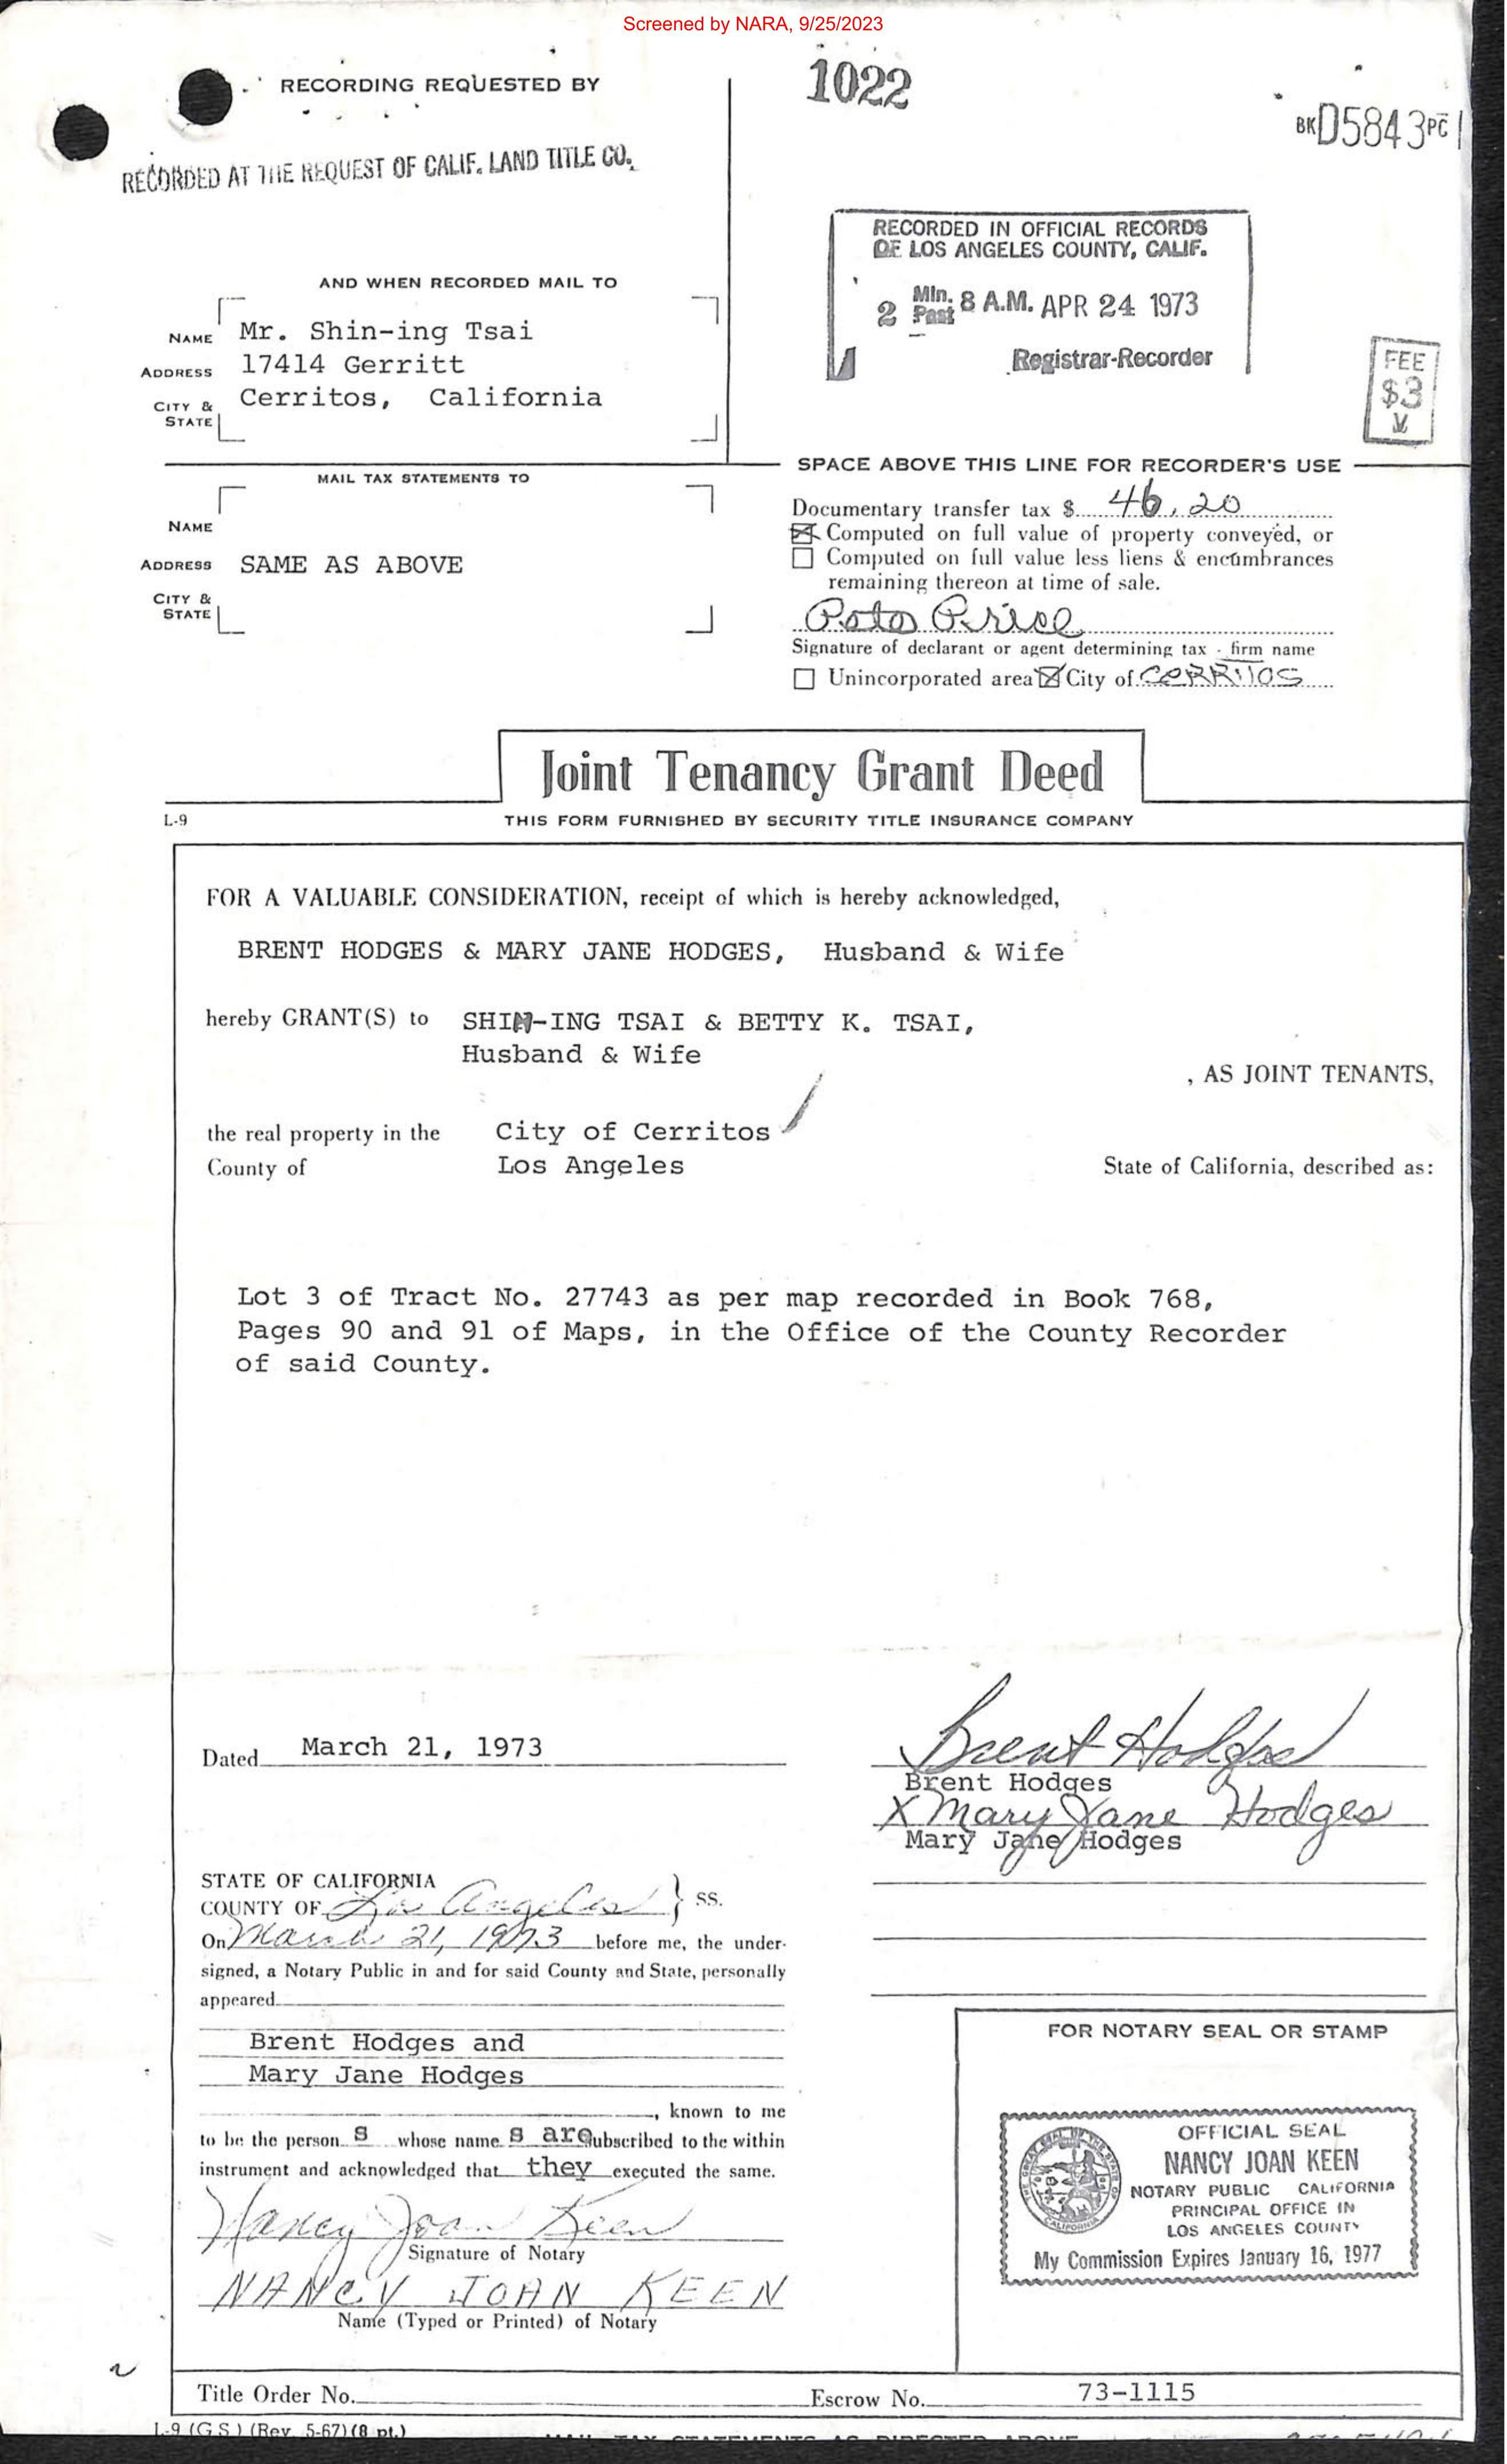 Screened by NARA, 9/25/2023
1022
BK D5843 PG
RECORDING REQUESTED BY
RECORDED AT THE REQUEST OF CALIF. LAND TITLE CO.
RECORDED IN OFFICIAL RECORDS
OF LOS ANGELES COUNTY, CALIF.
2 Min. Past 8 A.M. APR 24 1973
Registrar-Recorder
FEE
$3
V
AND WHEN RECORDED MAIL TO
NAME Mr. Shin-ing Tsai
ADDRESS 17414 Gerritt
CITY & STATE Cerritos, California
SPACE ABOVE THIS LINE FOR RECORDER'S USE
MAIL TAX STATEMENTS TO
NAME
ADDRESS SAME AS ABOVE
CITY & STATE
Documentary transfer tax $ 46.20
Computed on full value of property conveyed, or
Computed on full value less liens & encumbrances
remaining thereon at time of sale.
Signature of declarant or agent determining tax - firm name
Unincorporated area City of CERRITOS
Joint Tenancy Grant Deed
L-9 THIS FORM FURNISHED BY SECURITY TITLE INSURANCE COMPANY
FOR A VALUABLE CONSIDERATION, receipt of which is hereby acknowledged,
BRENT HODGES & MARY JANE HODGES, Husband & Wife
hereby GRANT(S) to SHIN-ING TSAI & BETTY K. TSAI,
Husband & Wife
, AS JOINT TENANTS,
the real property in the City of Cerritos
County of Los Angeles State of California, described as:
Lot 3 of Tract No. 27743 as per map recorded in Book 768,
Pages 90 and 91 of Maps, in the Office of the County Recorder
of said County.
Dated March 21, 1973
Brent Hodges
Brent Hodges
X Mary Jane Hodges
Mary Jane Hodges
STATE OF CALIFORNIA
COUNTY OF Los Angeles } SS.
On March 21, 1973 before me, the under-
signed, a Notary Public in and for said County and State, personally
appeared
Brent Hodges and
Mary Jane Hodges
, known to me
to be the person s whose name s are subscribed to the within
instrument and acknowledged that they executed the same.
Nancy Joan Keen
Signature of Notary
NANCY JOAN KEEN
Name (Typed or Printed) of Notary
FOR NOTARY SEAL OR STAMP
OFFICIAL SEAL
NANCY JOAN KEEN
NOTARY PUBLIC CALIFORNIA
PRINCIPAL OFFICE IN
LOS ANGELES COUNTY
My Commission Expires January 16, 1977
Title Order No. Escrow No. 73-1115
L-9 (G.S.) (Rev. 5-67) (8 pt.)
MAIL TAX STATEMENTS AS DIRECTED ABOVE